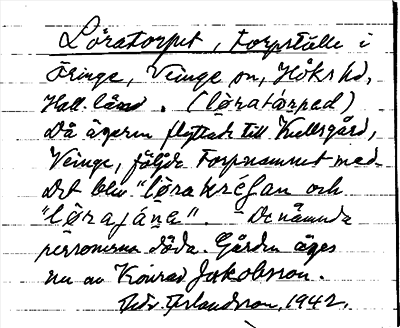 Löratorpet, Torpställe i
Öringe, Veinge sn, Höks hd,
Hall. län. (löratårped)
Då ägaren flyttade till Kullsgård,
Veinge, följde Torpnamnet med.
Det blev "löra kréſan och
"löra jäna". - De nämnda
personerna döda. Gården äges
nu av Konrad Jakobsson.
Erlandsson, 1942.